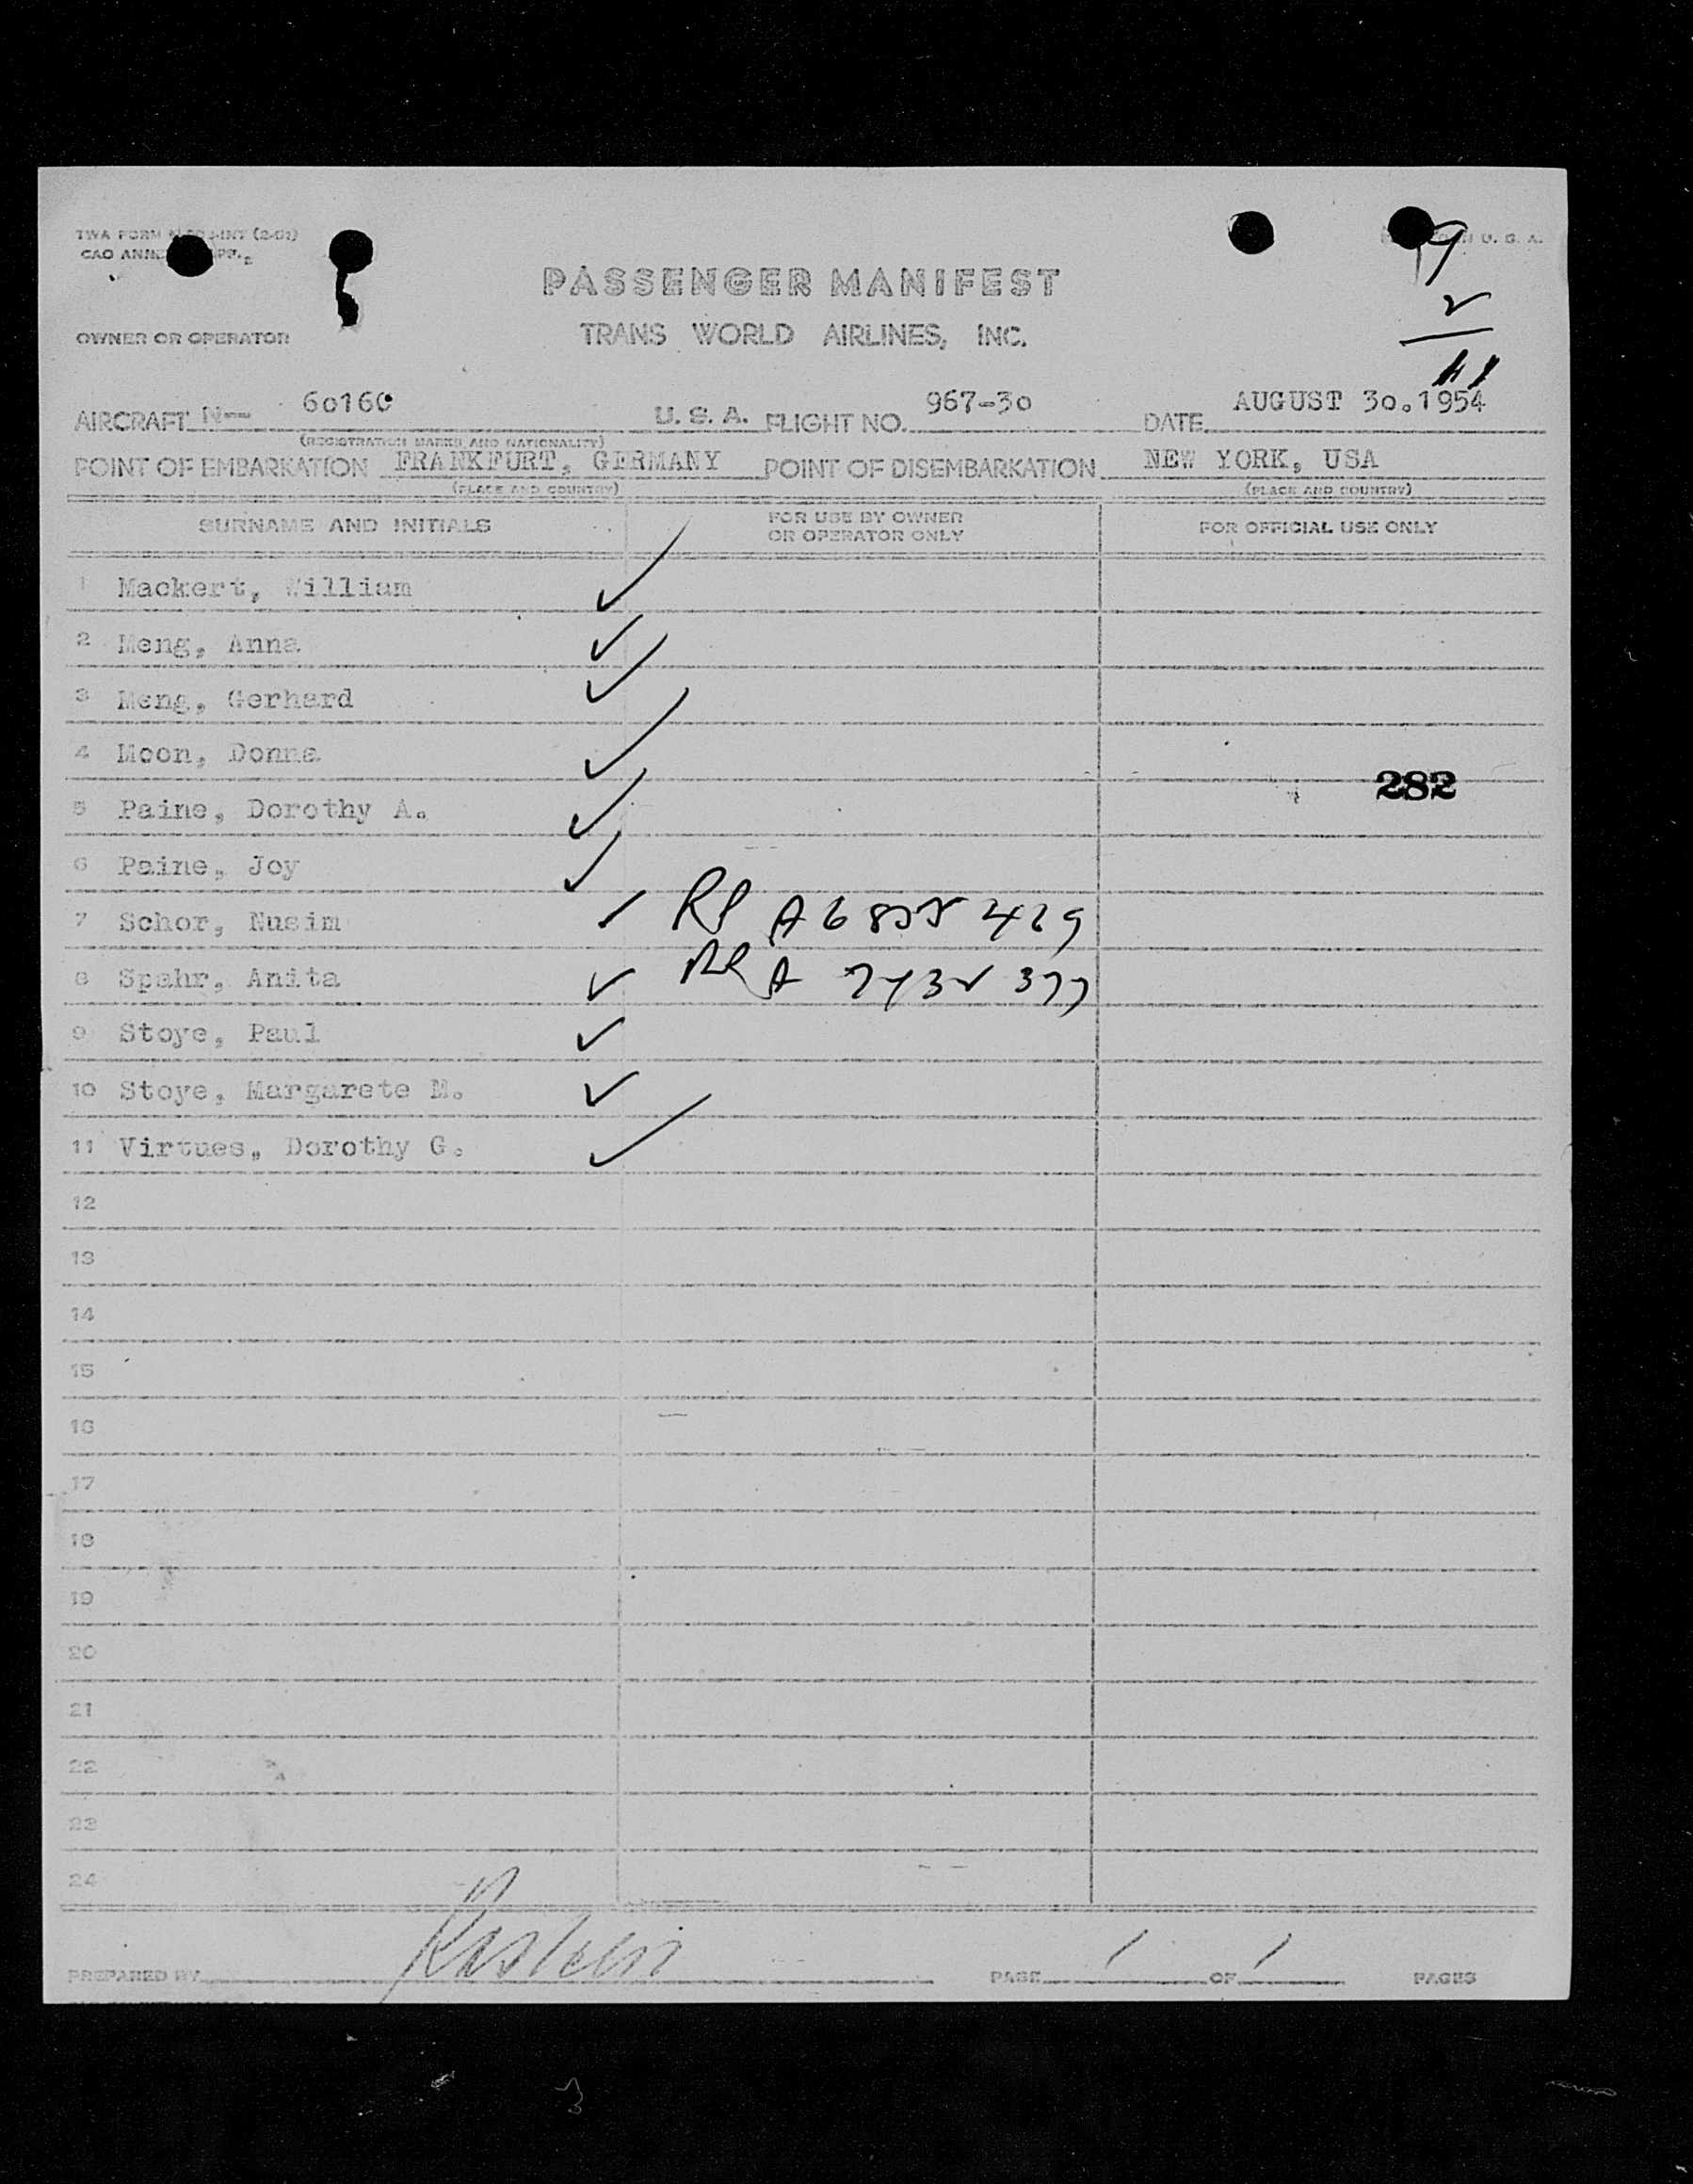 TWA FORM
CAO ANNE
U. S. A.
9
2
11
PASSENGER MANIFEST
OWNER OR OPERATOR TRANS WORLD AIRLINES, INC.
AIRCRAFT N-- 6016C U. S. A. FLIGHT NO. 967-30 DATE AUGUST 30.1954
(REGISTRATION MARKS AND NATIONALITY)
POINT OF EMBARKATION FRANKFURT, GERMANY POINT OF DISEMBARKATION NEW YORK, USA
(PLACE AND COUNTRY) (PLACE AND COUNTRY)
SURNAME AND INITIALS FOR USE BY OWNER OR OPERATOR ONLY FOR OFFICIAL USE ONLY
1 Mackert, William ✓
2 Meng, Anna ✓
3 Meng, Gerhard ✓
4 Moon, Donna ✓
282
5 Paine, Dorothy A. ✓
6 Paine, Joy ✓
7 Schor, Nusim
8 Spahr, Anita ✓
9 Stoye, Paul ✓
10 Stoye, Margarete M. ✓
11 Virtues, Dorothy G. ✓
12
13
14
15
16
17
18
19
20
21
22
23
24
PREPARED BY PAGE 1 OF 1 PAGES